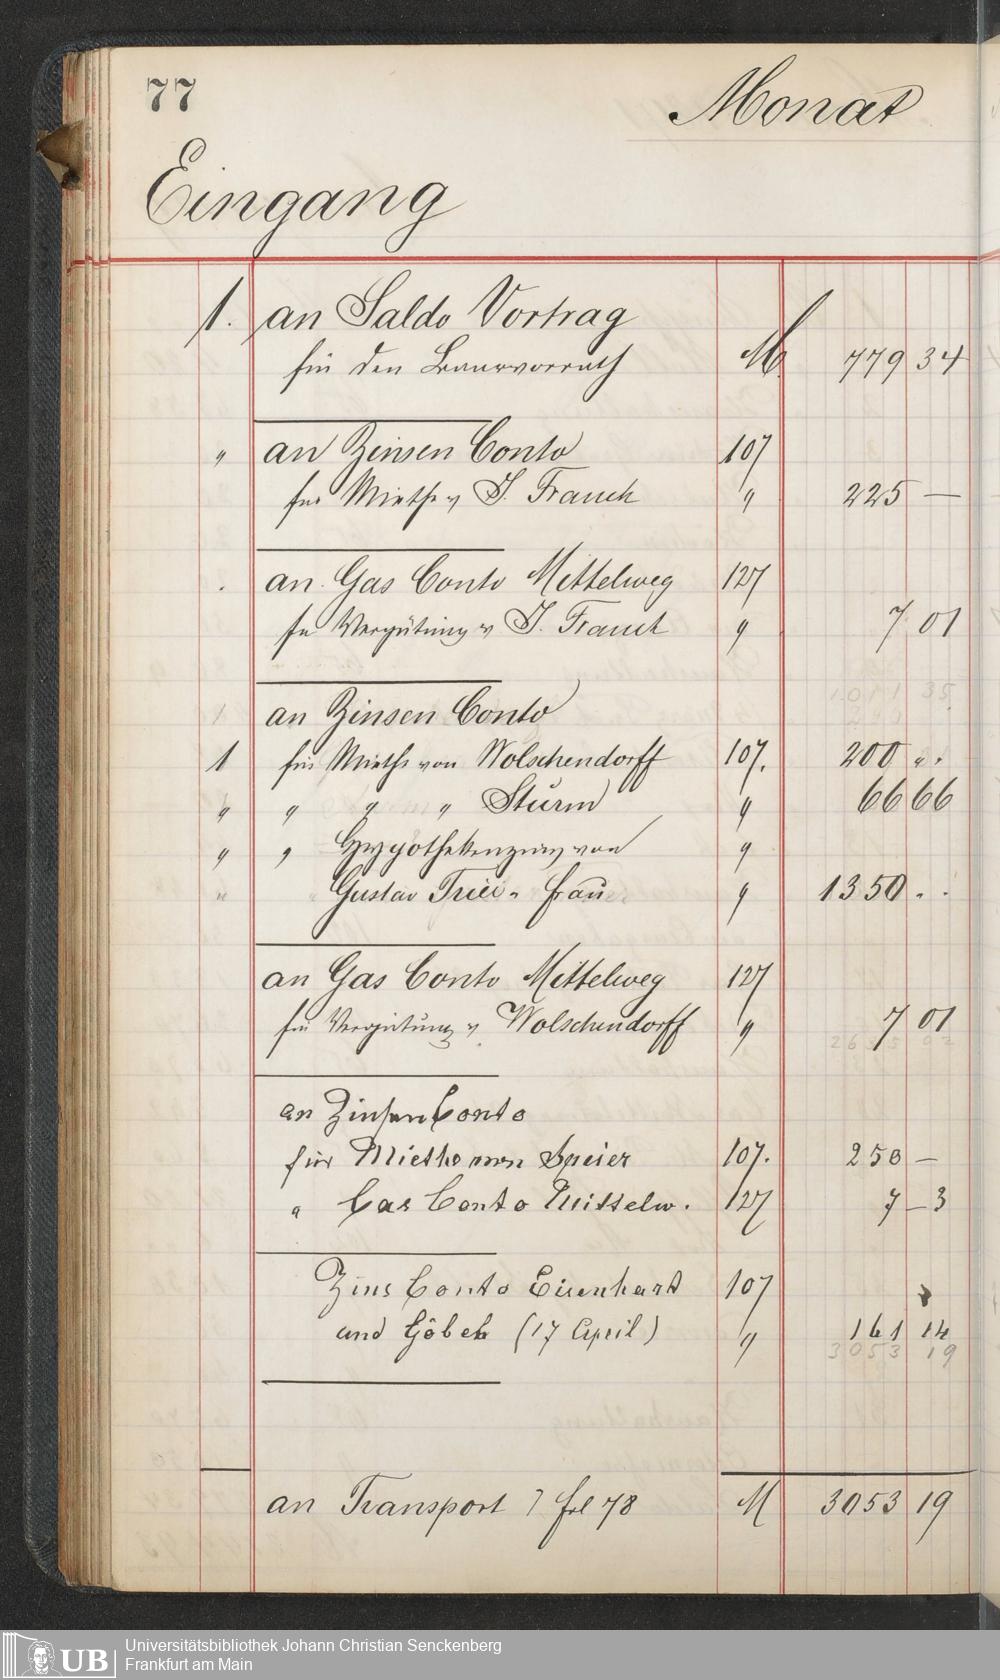 77
Monat
Eingang
1. an Saldo Vortrag
für den Baarvorrath M 779 34
" an Zinsen Conto 107
für Miethe v J. Franck " 225 —
an Gas Conto Mittelweg 127
für Vergütung v J. Franck " 7 01
1011 35
an Zinsen Conto
1 für Miethe von Wolschendorff 107. 200 ".
" " " " Sturm " 66 66
" " Hypothekenzins von "
" Gustav Frau " 1350 . .
an Gas Conto Mittelweg 127
für Vergütung v. Wolschendorff " 7 01
2635 02
an Zinsen Conto
für Miethe von Speier 107. 250 —
" Gas Conto Mittelw. 127 7 — 3
Zins Conto Eisenhart 107
und Göbel (17 April) " 161 14
3053 19
an Transport fol 78 M 3053 19
UB
Universitätsbibliothek Johann Christian Senckenberg
Frankfurt am Main